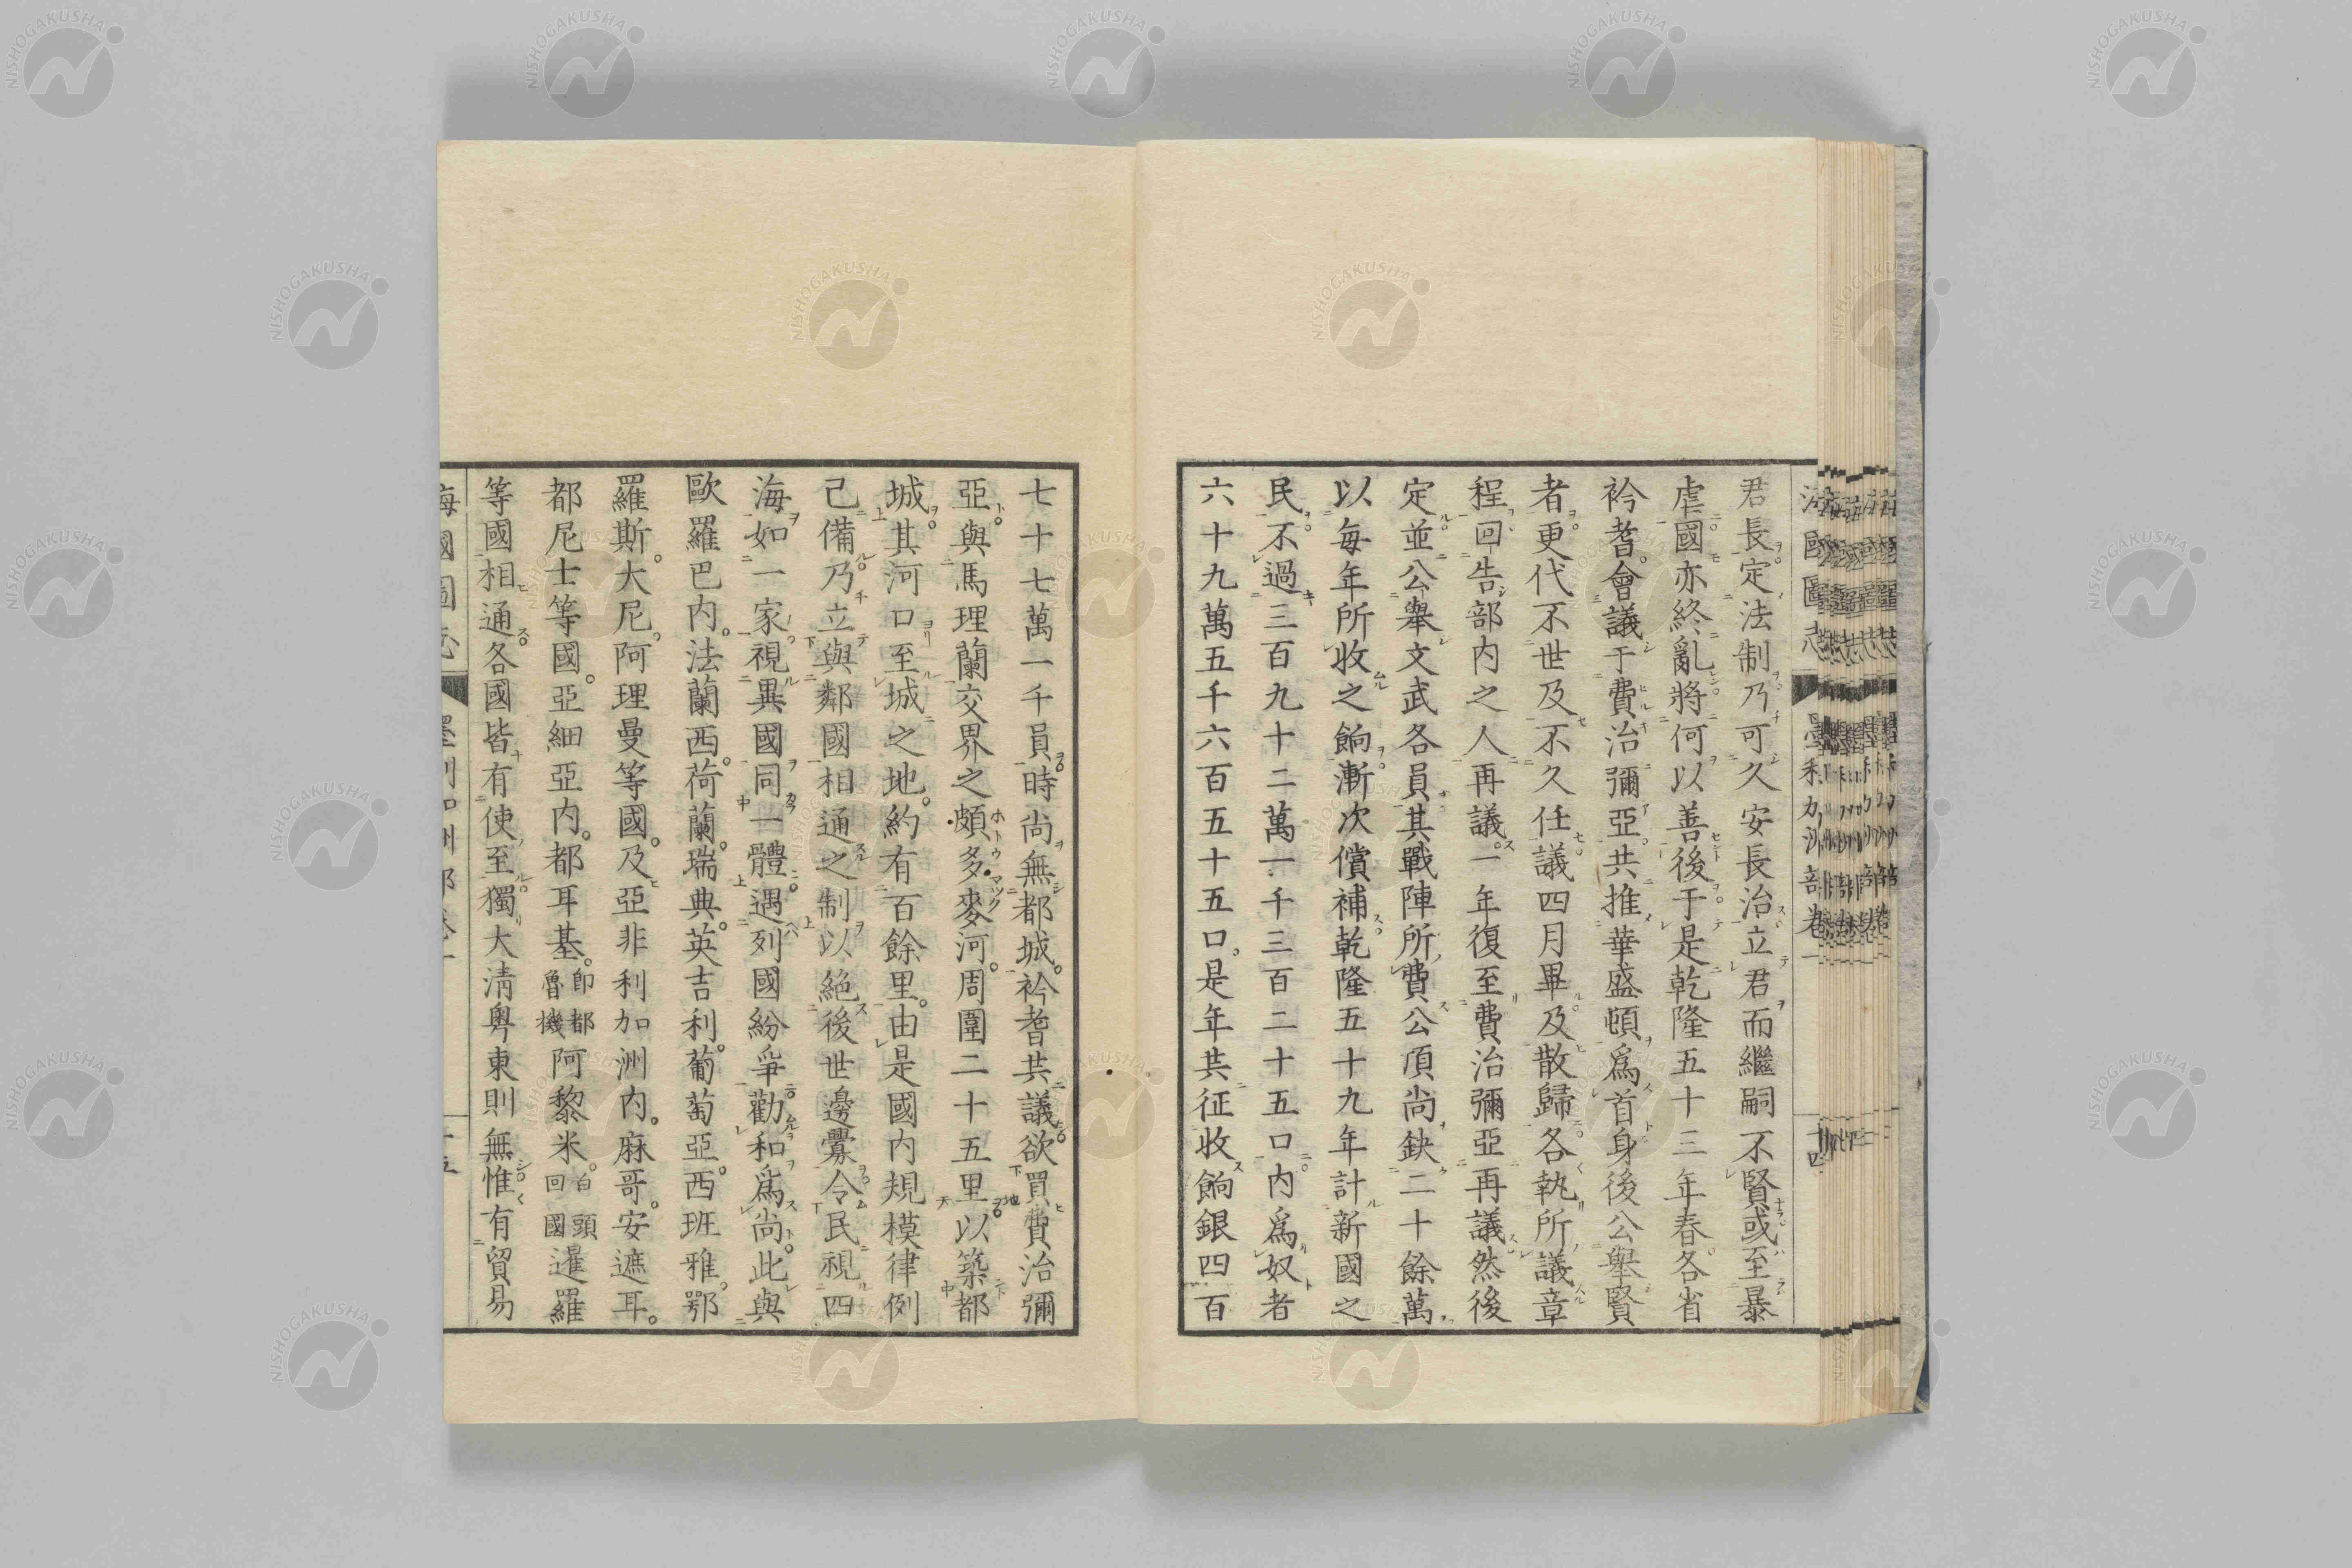 君長定法制乃可久安長治立君而繼嗣不賢或至暴
虐國亦終亂將何以善後于是乾隆五十三年春各省
衿耆會議于費治彌亞共推華盛頓爲首身後公舉賢
者更代不世及不久任議四月畢及散歸各執所議章
程回告部內之人再議一年復至費治彌亞再議然後
定並公舉文武各員其戰陣所費公項尚缺二十餘萬
以每年所收之餉漸次償補乾隆五十九年計新國之
民不過三百九十二萬一千三百二十五口內爲奴者
六十九萬五千六百五十五口。是年共征收餉銀四百
七十七萬一千員時尚無都城。衿耆共議欲買費治彌
亞與馬理蘭交界之頗多麥河。周圍二十五里以築都
城其河口至城之地。約有百餘里。由是國內規模律例
己備乃立與鄰國相通之制以絕後世邊釁令民視四
海如一家視異國同一體遇列國紛爭勸和爲尚此與
歐羅巴內。法蘭西。荷蘭。瑞典。英吉利。葡萄亞。西班雅。鄂
羅斯。大尼。阿理曼等國。及亞非利加洲內。麻哥。安遮耳。
都尼士等國。亞細亞內。都耳基。卽都魯機阿黎米。白頭回國暹羅
等國相通各國皆有使至獨大淸粵東則無惟有貿易